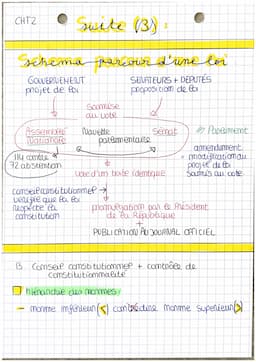 CHT2
Suite (3) :
Schema parcour d'une loi
GOUVERNEMENT
projet de loi
SENATEURS + DEPUTÉS
proposition de loi
Soumise
au vote
Assemblée
nationale
Navette
parlementaire
Sénat
=> Parlement
114 contre
72 abstention
amendement
= modification du
projet de loi
Soumis au vote
vote d'un texte identique
conseil constitutionnel →
vérifie que la loi
respecte la
constitution
promulgation par le Président
de la République
+
PUBLICATION AU JOURNAL OFFICIEL
B. Conseil constitutionnel + contrôle de
constitutionnalité
Hiérarchie des normes
- norme inférieur (<) norme supérieur (>)